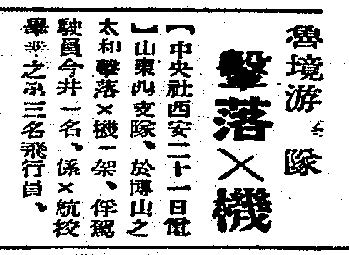 魯境游 隊
擊落×機
【中央社西安二十一日電
】山東四支隊、於博山之
太和擊落×機一架、俘駕
駛員今井一名、係×航校
畢業之第三名飛行員、